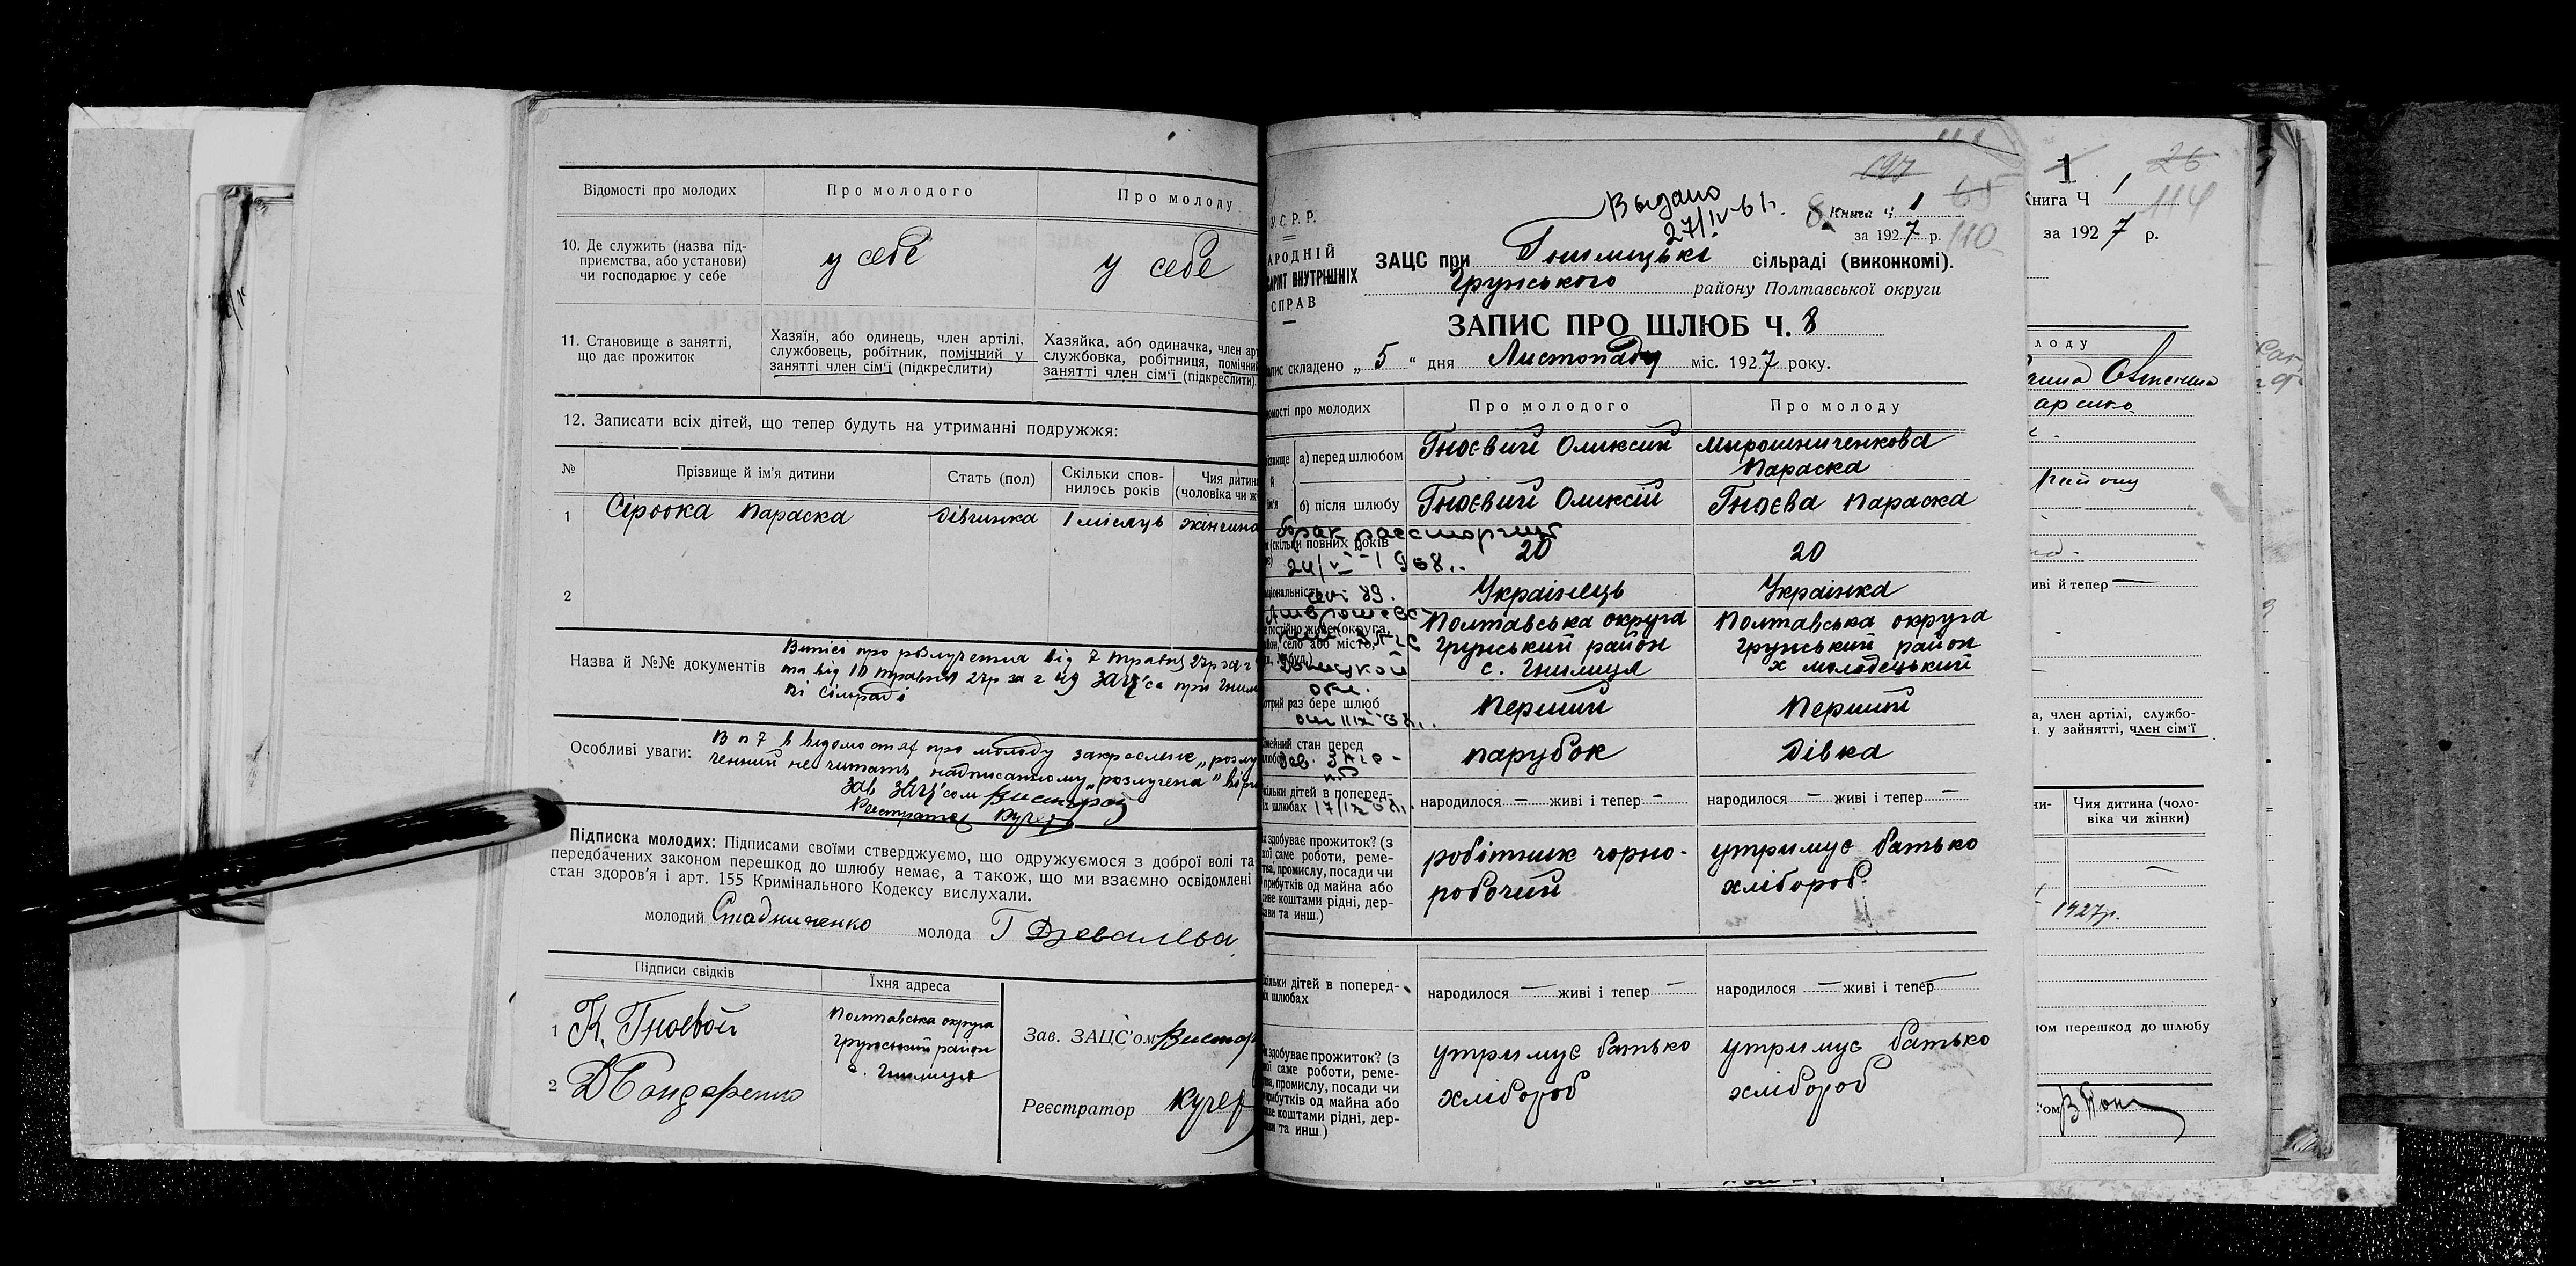 Відомості про молодих
Про молодого
Про молоду
10. Де служить (назва під-
приємства, або установи)
чи господарює у себе
у себе
у себе
11. Становище в занятті,
що дає прожиток
Хазяїн, або одинець, член артілі,
службовець, робітник, помічний у
занятті член сім'ї (підкреслити)
Хазяйка, або одиначка, член арт
службовка, робітниця, помічни
занятті член сім'ї (підкреслити).
12. Записати всіх дітей, що тепер будуть на утриманні подружжя:
№
Прізвище й ім'я дитини
Стать (пол)
Скільки спов-
нилось років
Чия дитина
(чоловіка чи ж
1
Сірокка Параска
дівчинка
1 місяць
жінчина
2
Назва й №№ документів
Виписі про розлучення від 7 травня 27р за ч
та від 10 травня 27р за ч 49 ЗАЦ'са при Гнили
кі сільраді
Особливі уваги:
В п 7 в відомостях про молоду закреслене „розлу
ченний не читать надписаному „розлучена" вірн
Зав. ЗАЦ'сом
Реєстратор Кучер
Підписка молодих: Підписами своїми стверджуємо, що одружуємося з доброї волі та
передбачених законом перешкод до шлюбу немає, а також, що ми взаємно освідомлені
стан здоров'я і арт. 155 Кримінального Кодексу вислухали.
молодий Стадниченко молода Г
Підписи свідків
Їхня адреса
1 К. Гноевой
2 Д Бондаренко
Полтавська округа
Грунський район
с. Гнилиця
Зав. ЗАЦС'ом
Реєстратор Кучер
197
Выдано
27/IV-61г.
8
Книга Ч 1
65
за 1927 р.
110
У.С.Р.Р.
АРОДНІЙ
АРІЯТ ВНУТРІШНІХ
СПРАВ
ЗАЦС при Гнилицькі сільраді (виконкомі).
Грунського району Полтавської округи
ЗАПИС ПРО ШЛЮБ Ч. 8
апис складено „ 5 " дня Листопаду міс. 1927 року.
омості про молодих
Про молодого
Про молоду
різвище
й
ім'я
а) перед шлюбом
Гноєвий Оликсий
Мирошниченкова
Параска
б) після шлюбу
Гноєвий Оликсій
Гноєва Параска
брак расторгнут
(скільки повних років
20
20
24/V-1968г.
аціональність
Українець
Українка
постійно живе (округа,
йон, село або місто,
Полтавська округа
Грунський район
с. Гнилиця
Полтавська округа
Грунський район
х Молодецький
Донецкой
обл.
отрий раз бере шлюб
Перший
Перший
імейний стан перед
парубок
дівка
Зав. ЗАГС
кільки дітей в поперед-
іх шлюбах
17/IX 68г.
народилося — живі і тепер —
народилося — живі і тепер —
к здобуває прожиток? (з
кої саме роботи, реме-
тва, промислу, посади чи
прибутків од майна або
иве коштами рідні, дер-
ави та инш.)
робітник чорно-
робочий
утримує батько
хлібороб
кільки дітей в поперед-
іх шлюбах
народилося — живі і тепер —
народилося — живі і тепер —
к здобуває прожиток? (з
кої саме роботи, реме-
тва, промислу, посади чи
прибутків од майна або
иве коштами рідні, дер-
ави та инш.)
утримує батько
хлібороб
утримує батько
хлібороб
1
26
Книга Ч 1
114
за 1927 р.
лоду
району
иві й тепер —
а, член артілі, службо-
у зайнятті, член сім'ї
чи-
Чия дитина (чоло-
віка чи жінки)
—
1927р.
ном перешкод до шлюбу
'ом